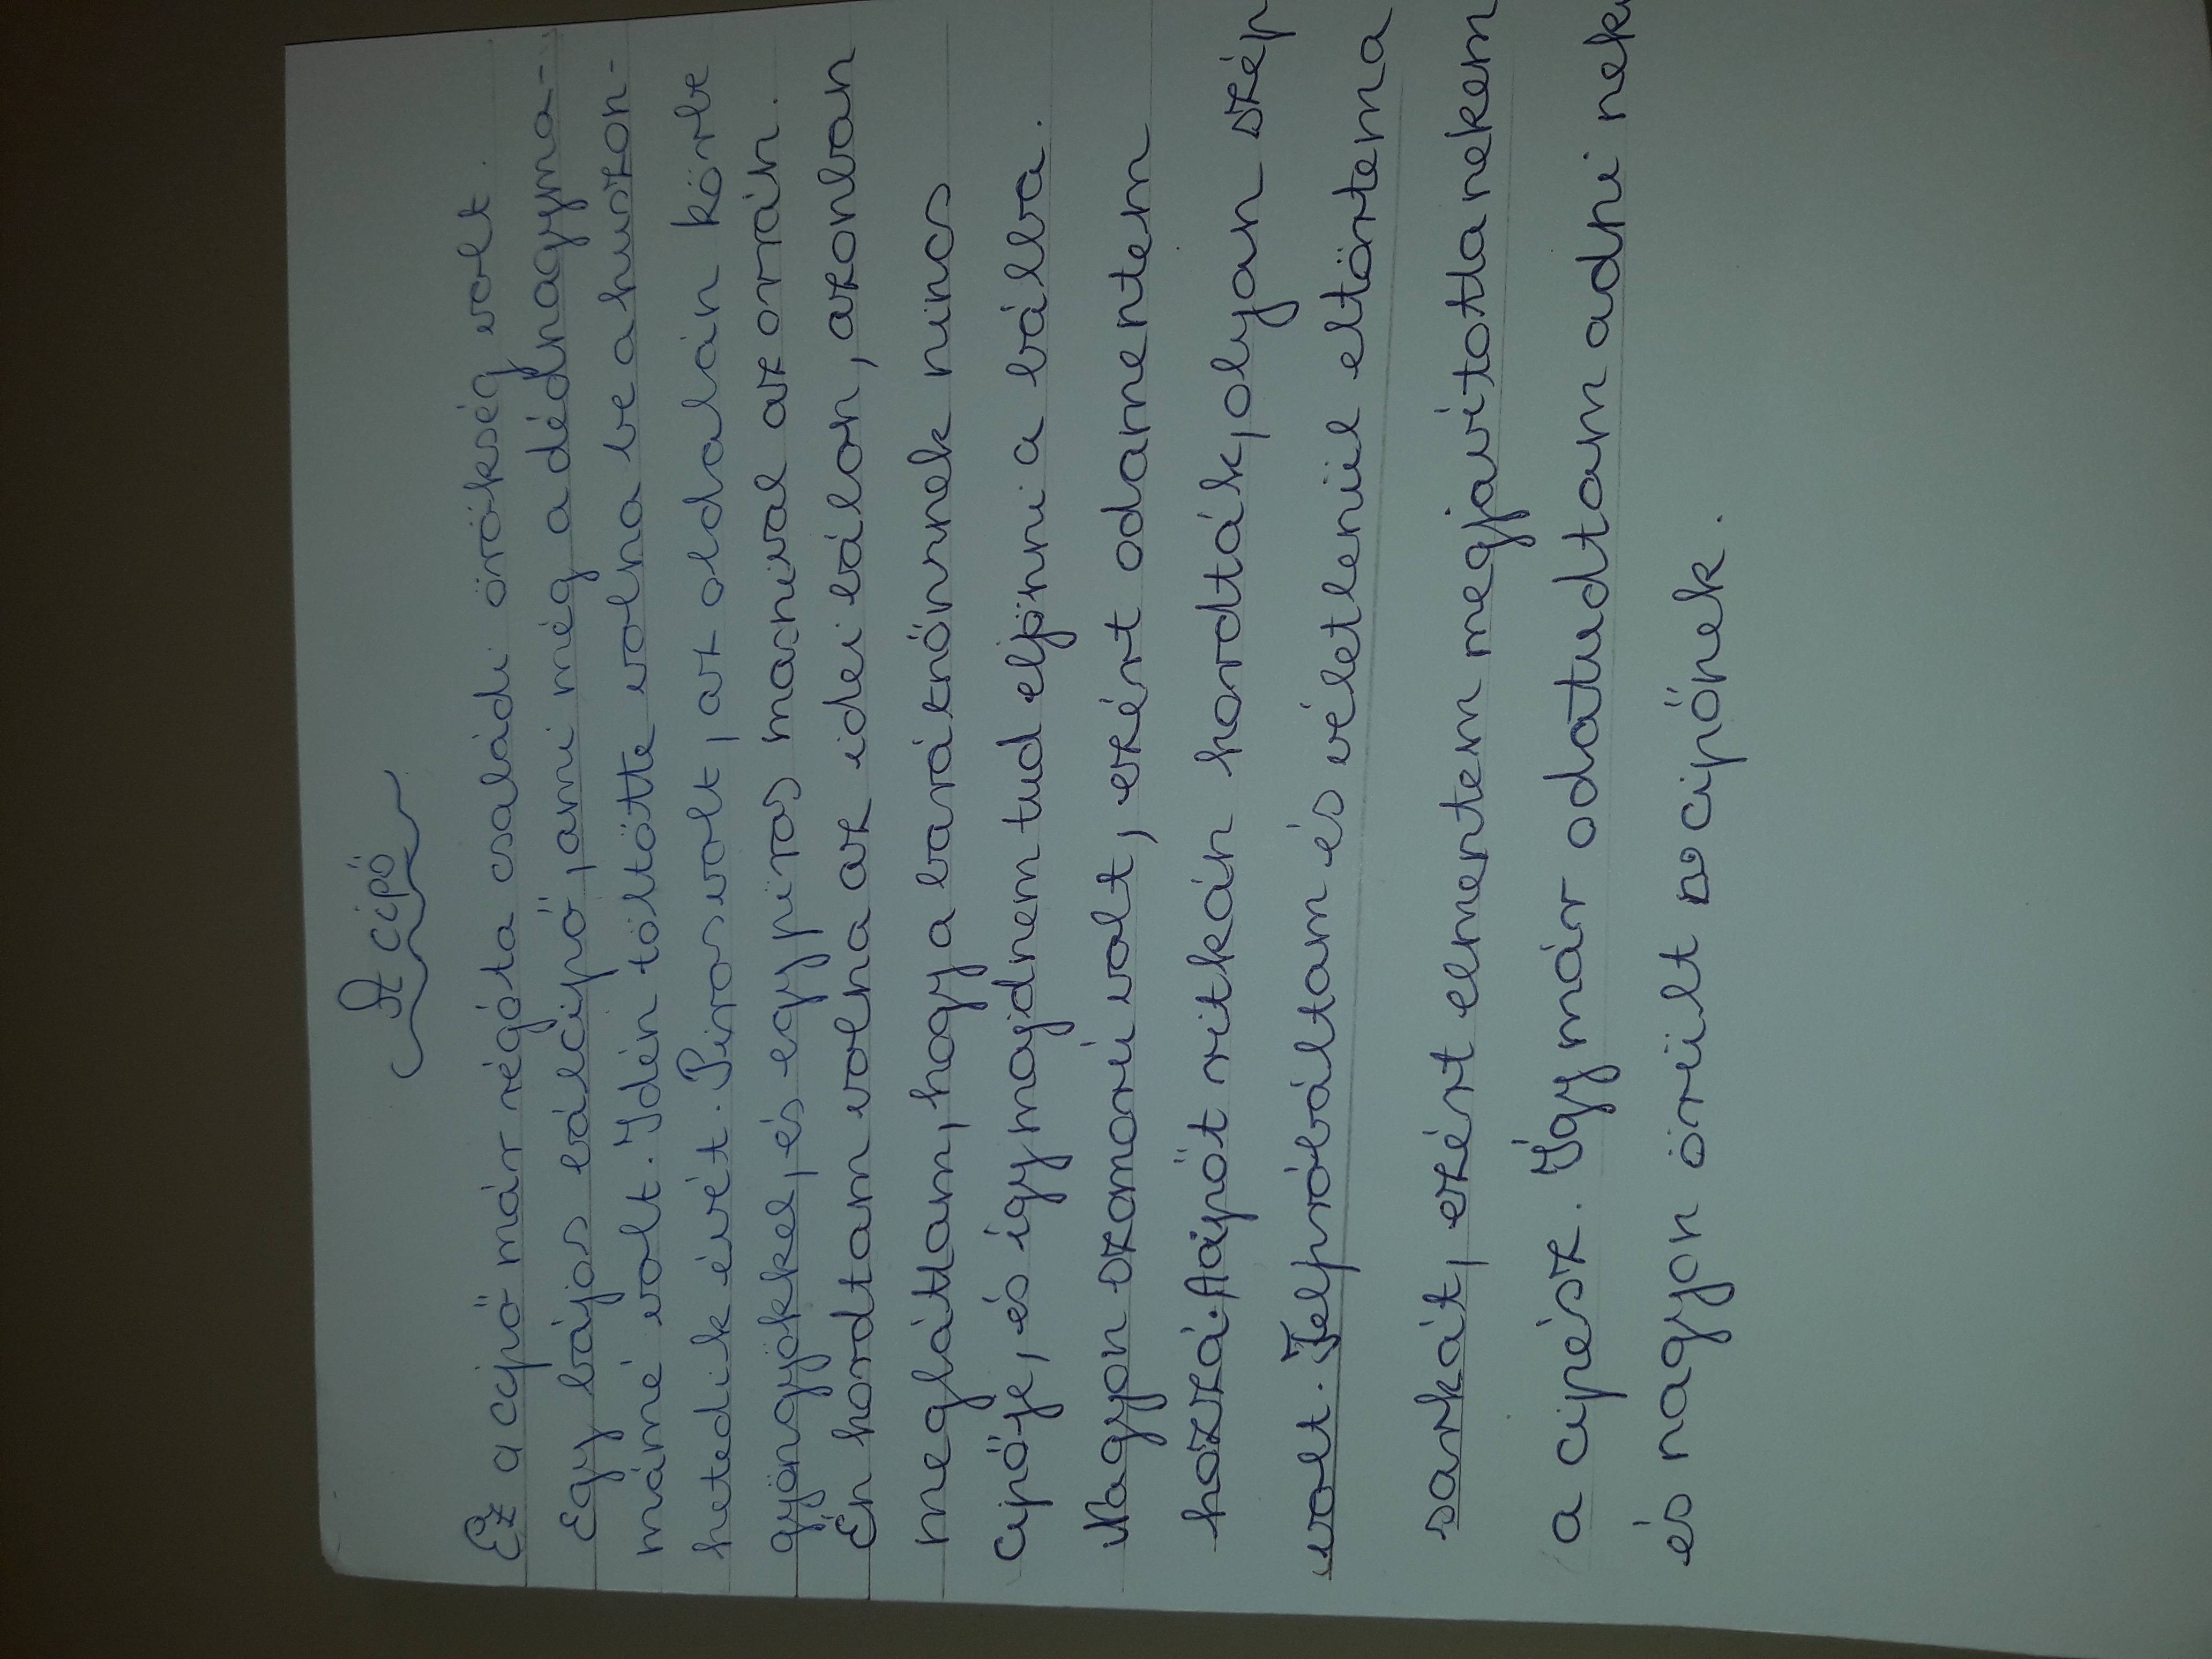 A cipő
Ez a cipő már régóta családi örökség volt.
Egy bájos bálcipő, ami még a dédnagyma-
mámé volt. Idén töltötte volna be a huszon-
hetedik évét. Piros volt, az oldalán körbe
gyöngyökkel, és egy piros masnival az orrán.
Én hordtam volna az idei bálon, azonban
megláttam, hogy a barátnőmnek nincs
cipője, és így majdnem tud eljönni a bálba.
Nagyon szomorú volt, ezért odamentem
hozzá. A cipőt ritkán hordták, olyan szép
volt. Felpróbáltam és véletlenül eltörtem a
sarkát, ezért elmentem megjavította nekem
a cipész. Így már odatudtam adni neki
és nagyon örült a cipőnek.